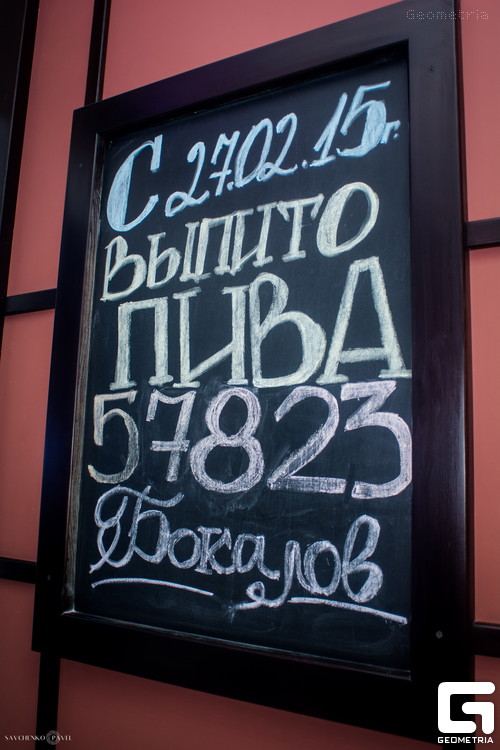 Geometria
С 27.02.15г.
ВЫПИТО
ПИВА
57823
Бокалов
SAVCHENKO PAVEL
GEOMETRIA